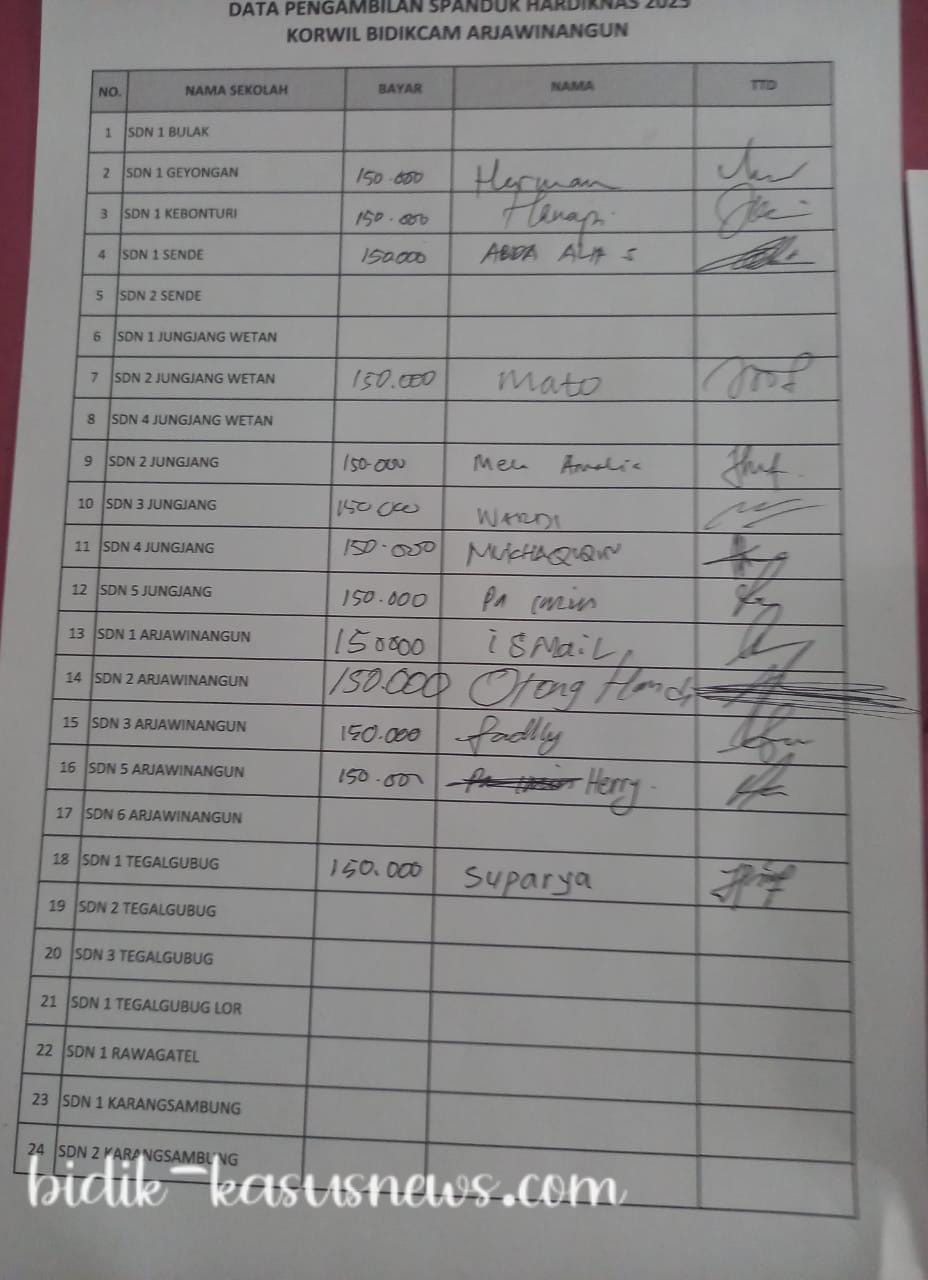 DATA PENGAMBILAN SPANDUK HARDIKNAS 2025
KORWIL BIDIKCAM ARJAWINANGUN
NO. NAMA SEKOLAH BAYAR NAMA TTD
1 SDN 1 BULAK
2 SDN 1 GEYONGAN 150.000 Herman
3 SDN 1 KEBONTURI 150.000 Hanapi
4 SDN 1 SENDE 150000 ABDA ALIA S
5 SDN 2 SENDE
6 SDN 1 JUNGJANG WETAN
7 SDN 2 JUNGJANG WETAN 150.000 Mato
8 SDN 4 JUNGJANG WETAN
9 SDN 2 JUNGJANG 150.000
10 SDN 3 JUNGJANG 150 000 WARDI
11 SDN 4 JUNGJANG 150.000
12 SDN 5 JUNGJANG 150.000 Pa
13 SDN 1 ARJAWINANGUN 150000 iSMaiL
14 SDN 2 ARJAWINANGUN 150.000 Otong
15 SDN 3 ARJAWINANGUN 150.000 fadlly
16 SDN 5 ARJAWINANGUN 150.000 Herry.
17 SDN 6 ARJAWINANGUN
18 SDN 1 TEGALGUBUG 150.000 Suparya
19 SDN 2 TEGALGUBUG
20 SDN 3 TEGALGUBUG
21 SDN 1 TEGALGUBUG LOR
22 SDN 1 RAWAGATEL
23 SDN 1 KARANGSAMBUNG
24 SDN 2 KARANGSAMBUNG
bidik-kasusnews.com